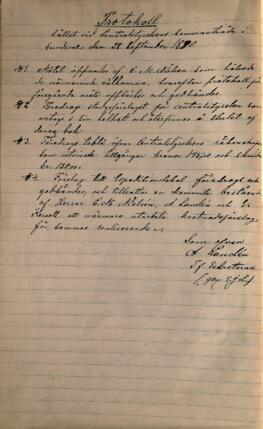 Protokoll
hållet vid Centralstyrelsens sammanträde i
Sundsvall den 28 September 1890.
§1. Mötet öppnades af C. N. Nilsén som hälsade
de närvarande välkomna, hvarefter protokoll från
föregående möte upplästes och godkändes.
§2. Föredrogs stadgeförslaget för Centralstyrelsen som
antogs i sin helhet och återfinnes å slutet af
denna bok.
§3. Föredrogs tablå öfver Centralstyrelsens räkenskaper
som utvisade tillgångar kronor och skulder
kr.
§4. Förslag till Expeditionslokal föredrogs och
godkändes, och tillsattes en kommitté bestående
af Herrar C. N. Nilsén, A. Landlén och
att närmare utarbeta kostnadsförslag
för sammas realiserande.
Som ofvan
A. Landlén
T.f. Sekreterare